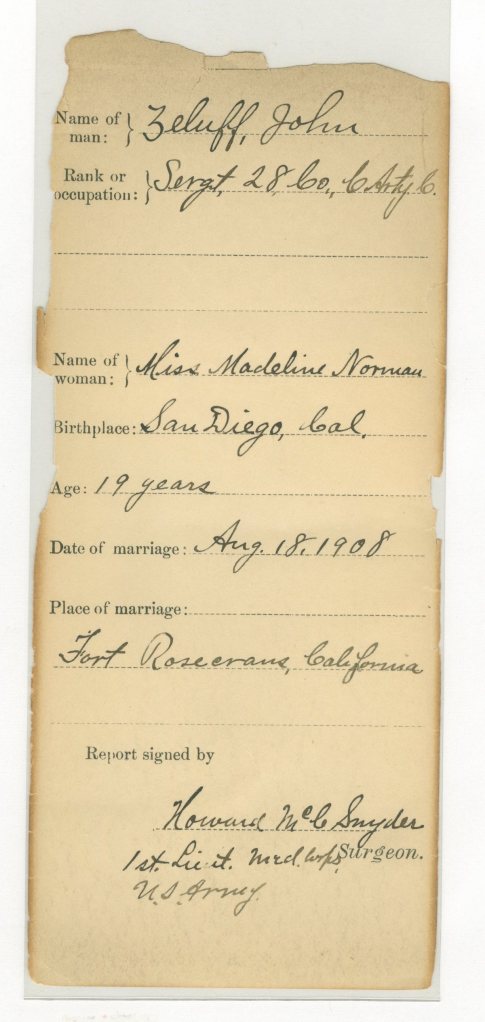 Name of man: } Zeluff, John
Rank or occupation: } Sergt, 28 Co., C Arty C.
Name of woman: } Miss Madeline Norman
Birthplace: San Diego, Cal.
Age: 19 years
Date of marriage: Aug. 18, 1908
Place of marriage:
Fort Rosecrans, California
Report signed by
Howard McC Snyder
1st. Lieut. Med. Corps, Surgeon.
U.S. Army.